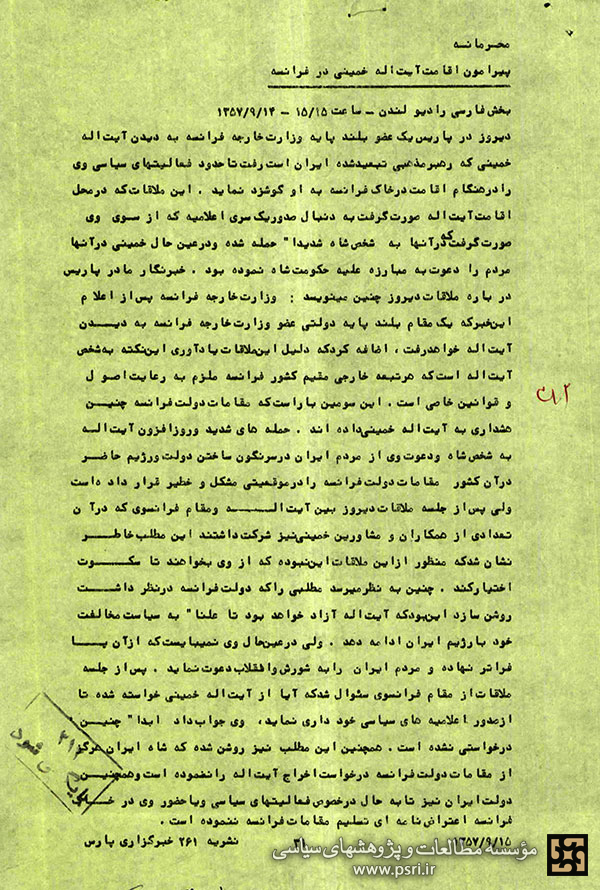 محرمانه
پیرامون اقامت آیت اله خمینی در فرانسه
بخش فارسی رادیو لندن - ساعت ۱۵/۱۵ - ۱۳۵۷/۹/۱۴
دیروز در پاریس یک عضو بلند پایه وزارت خارجه فرانسه به دیدن آیت اله
خمینی که رهبر مذهبی تبعید شده ایران است رفت تا حدود فعالیتهای سیاسی وی
را در هنگام اقامت در خاک فرانسه به او گوشزد نماید . این ملاقات که در محل
اقامت آیت اله صورت گرفت به دنبال صدور یک سری اعلامیه که از سوی وی
صورت گرفت که در آنها به شخص شاه شدیدا" حمله شده و در عین حال خمینی در آنها
مردم را دعوت به مبارزه علیه حکومت شاه نموده بود . خبرنگار ما در پاریس
در باره ملاقات دیروز چنین مینویسد : وزارت خارجه فرانسه پس از اعلام
این خبر که یک مقام بلند پایه دولتی عضو وزارت خارجه فرانسه به دیدن
آیت اله خواهد رفت ، اضافه کرد که دلیل این ملاقات یادآوری این نکته به شخص
آیت اله است که هر تبعه خارجی مقیم کشور فرانسه ملزم به رعایت اصول
و قوانین خاصی است . این سومین بار است که مقامات دولت فرانسه چنین
هشداری به آیت اله خمینی داده اند . حمله های شدید و روز افزون آیت اله
به شخص شاه و دعوت وی از مردم ایران در سرنگون ساختن دولت و رژیم حاضر
در آن کشور مقامات دولت فرانسه را در موقعیتی مشکل و خطیر قرار داده است
ولی پس از جلسه ملاقات دیروز بین آیت اله و مقام فرانسوی که در آن
تعدادی از همکاران و مشاورین خمینی نیز شرکت داشتند این مطلب خاطر
نشان شد که منظور از این ملاقات این نبوده که از وی بخواهند تا سکوت
اختیار کند . چنین به نظر میرسد مطلبی را که دولت فرانسه در نظر داشت
روشن سازد این بود که آیت اله آزاد خواهد بود تا علنا" به سیاست مخالفت
خود با رژیم ایران ادامه دهد . ولی در عین حال وی نمیبایست که از آن پا
فراتر نهاده و مردم ایران را به شورش و انقلاب دعوت نماید . پس از جلسه
ملاقات از مقام فرانسوی سئوال شد که آیا از آیت اله خمینی خواسته شده تا
از صدور اعلامیه های سیاسی خود داری نماید، وی جواب داد ابدا" چنین
درخواستی نشده است . همچنین این مطلب نیز روشن شده که شاه ایران هرگز
از مقامات دولت فرانسه درخواست اخراج آیت اله را ننموده است و همچنین
دولت ایران نیز تا به حال در خصوص فعالیتهای سیاسی و یا حضور وی در خاک
فرانسه اعتراض نامه ای تسلیم مقامات فرانسه ننموده است .
۱۳۵۷/۹/۱۵ ۳۱ نشریه ۲۶۱ خبرگزاری پارس
مؤسسه مطالعات و پژوهشهای سیاسی
www.psri.ir